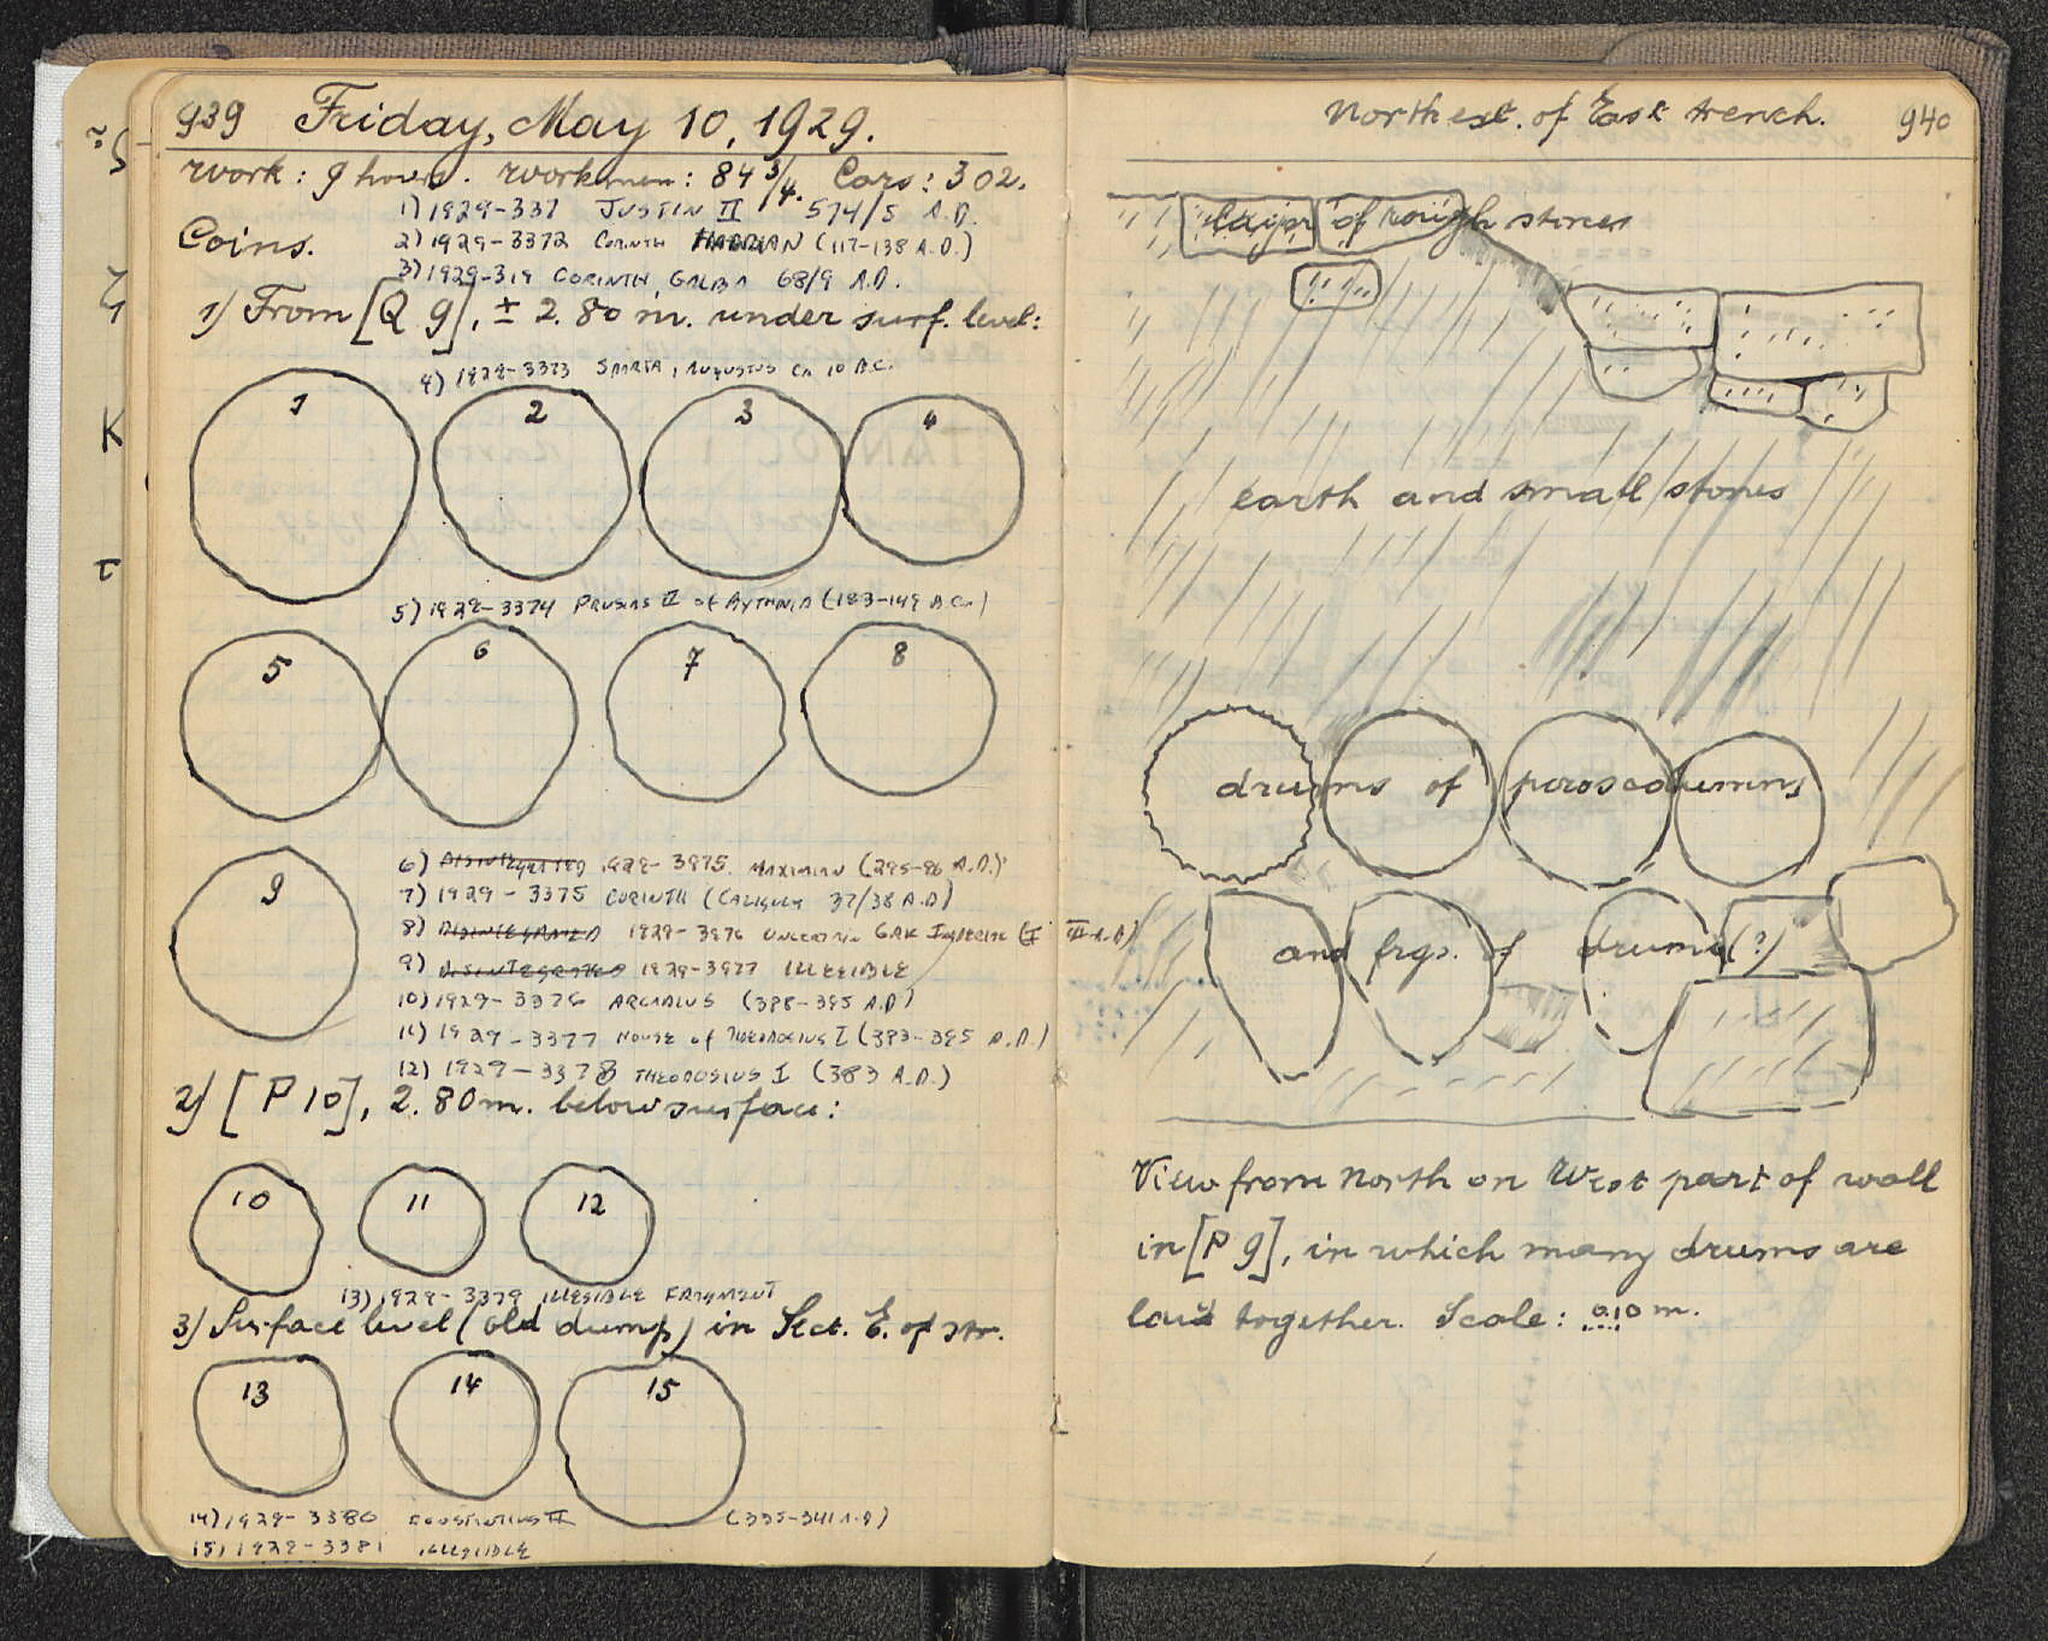 939 Friday, May 10, 1929.
Work: 9 hours. Workmen: 84 3/4. Cars: 302.
1) 1929-337 JUSTIN II 574/5 A.D.
Coins.
2) 1929-3372 CORINTH HADRIAN (117-138 A.D.)
3) 1929-319 CORINTH, GALBA 68/9 A.D.
1) From [Q 9], ± 2.80 m. under surf. level:
4) 1929-3373 SPARTA, AUGUSTUS CA 10 B.C.
1 2 3 4
5) 1929-3374 PRUSIAS II of BYTHINIA (183-149 B.C.)
5 6 7 8
9
6) DISINTEGRATED 1929-3975. MAXIMIAN (295-96 A.D.)
7) 1929-3375 CORINTH (CALIGULA 37/38 A.D)
8) DISINTEGRATED 1929-3976 UNCERTAIN GRK IMPERIAL (I III A.D)
9) DISINTEGRATED 1929-3977 ILLEGIBLE
10) 1929-3376 ARCADIUS (388-395 A.D)
11) 1929-3377 HOUSE of THEODOSIUS I (383-395 A.D.)
12) 1929-3378 THEODOSIUS I (383 A.D.)
2) [P 10], 2.80 m. below surface:
10 11 12
13) 1929-3379 ILLEGIBLE FRAGMENT
3) Surface level (old dump) in Sect. E. of str.
13 14 15
14) 1929-3380 CONSTANTIUS II (335-341 A.D)
15) 1929-3381 ILLEGIBLE
North est. of East trench. 940
layer of rough stones
earth and small stones
drums of poros columns
and frgs. of drums (?)
View from North on West part of wall
in [P 9], in which many drums are
laid together. Scale: 0.10 m.
K
τ